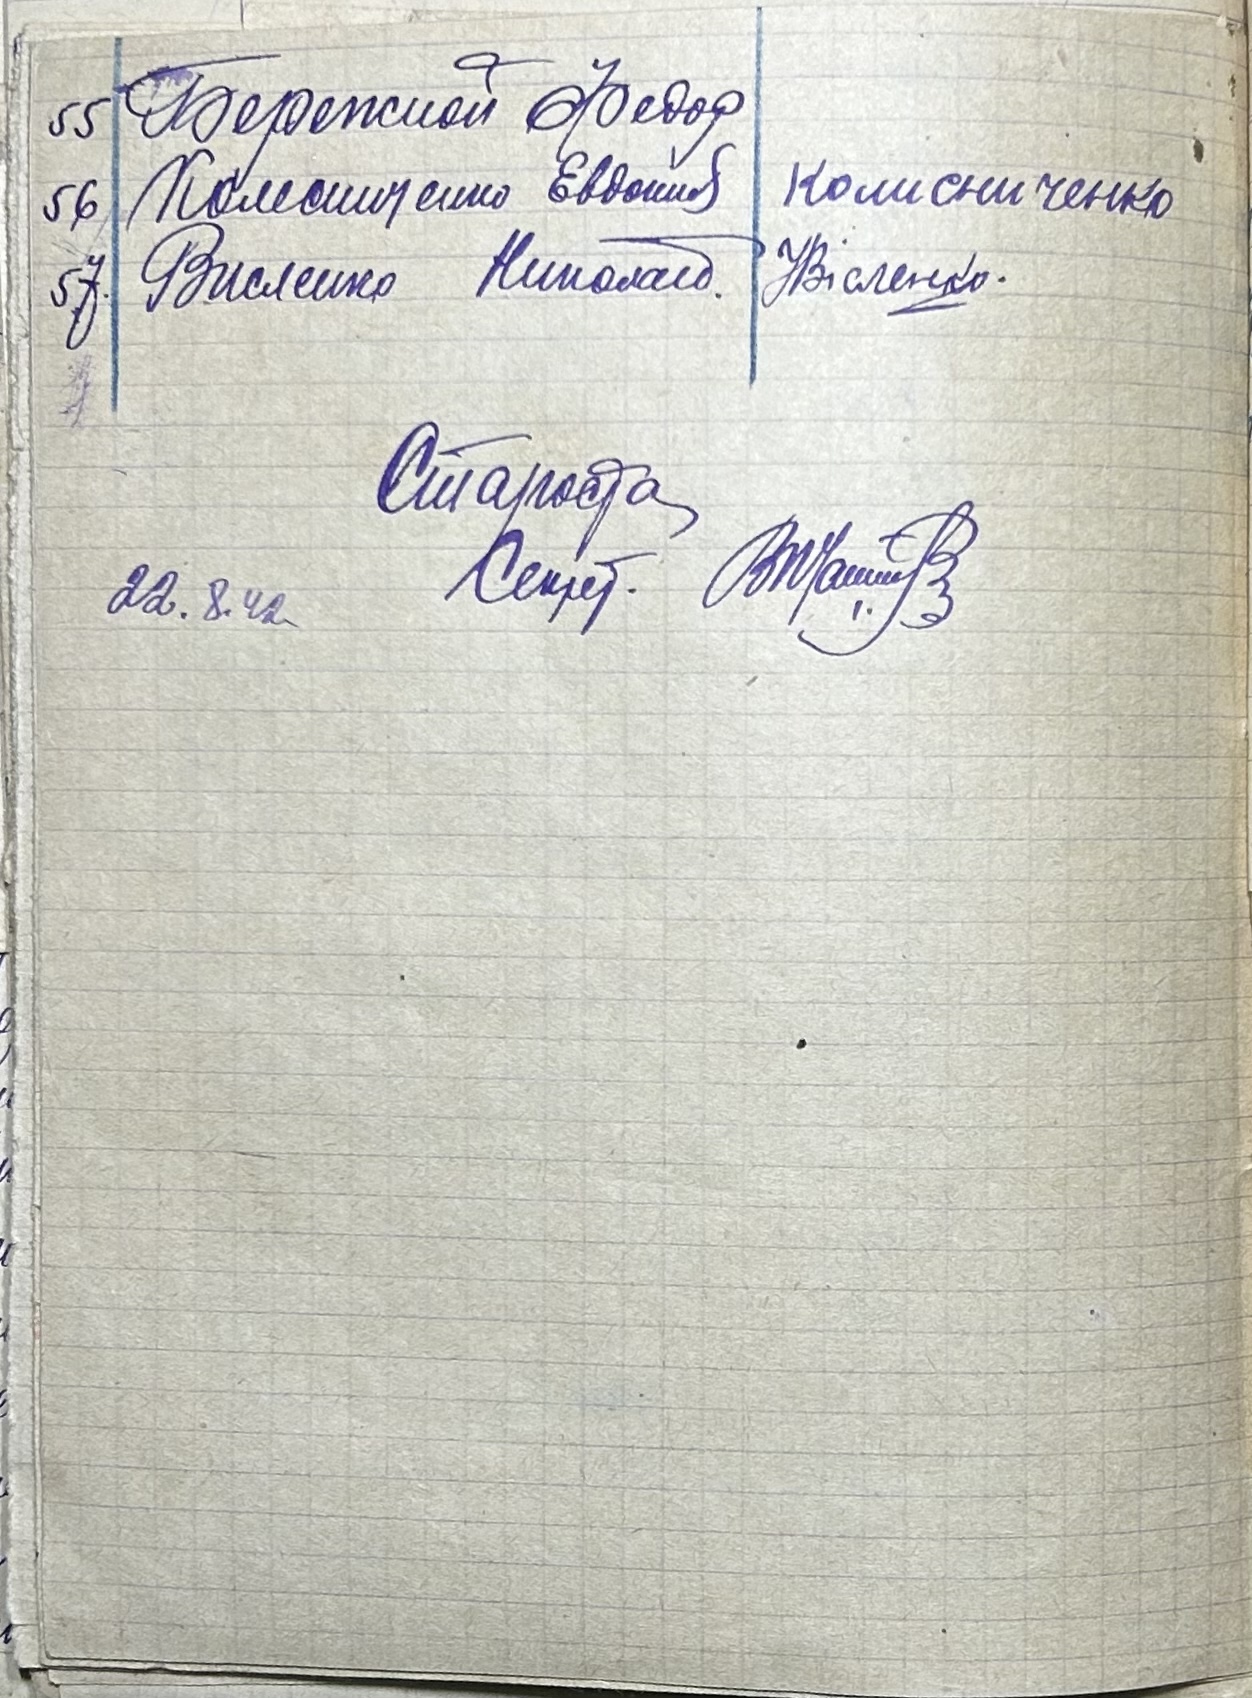 55 Бережной Федор
56 Колесниченко Евдокия Колисниченко
57. Висленко Николай. Вісленко.
Староста
Секрет.
22. 8. 42